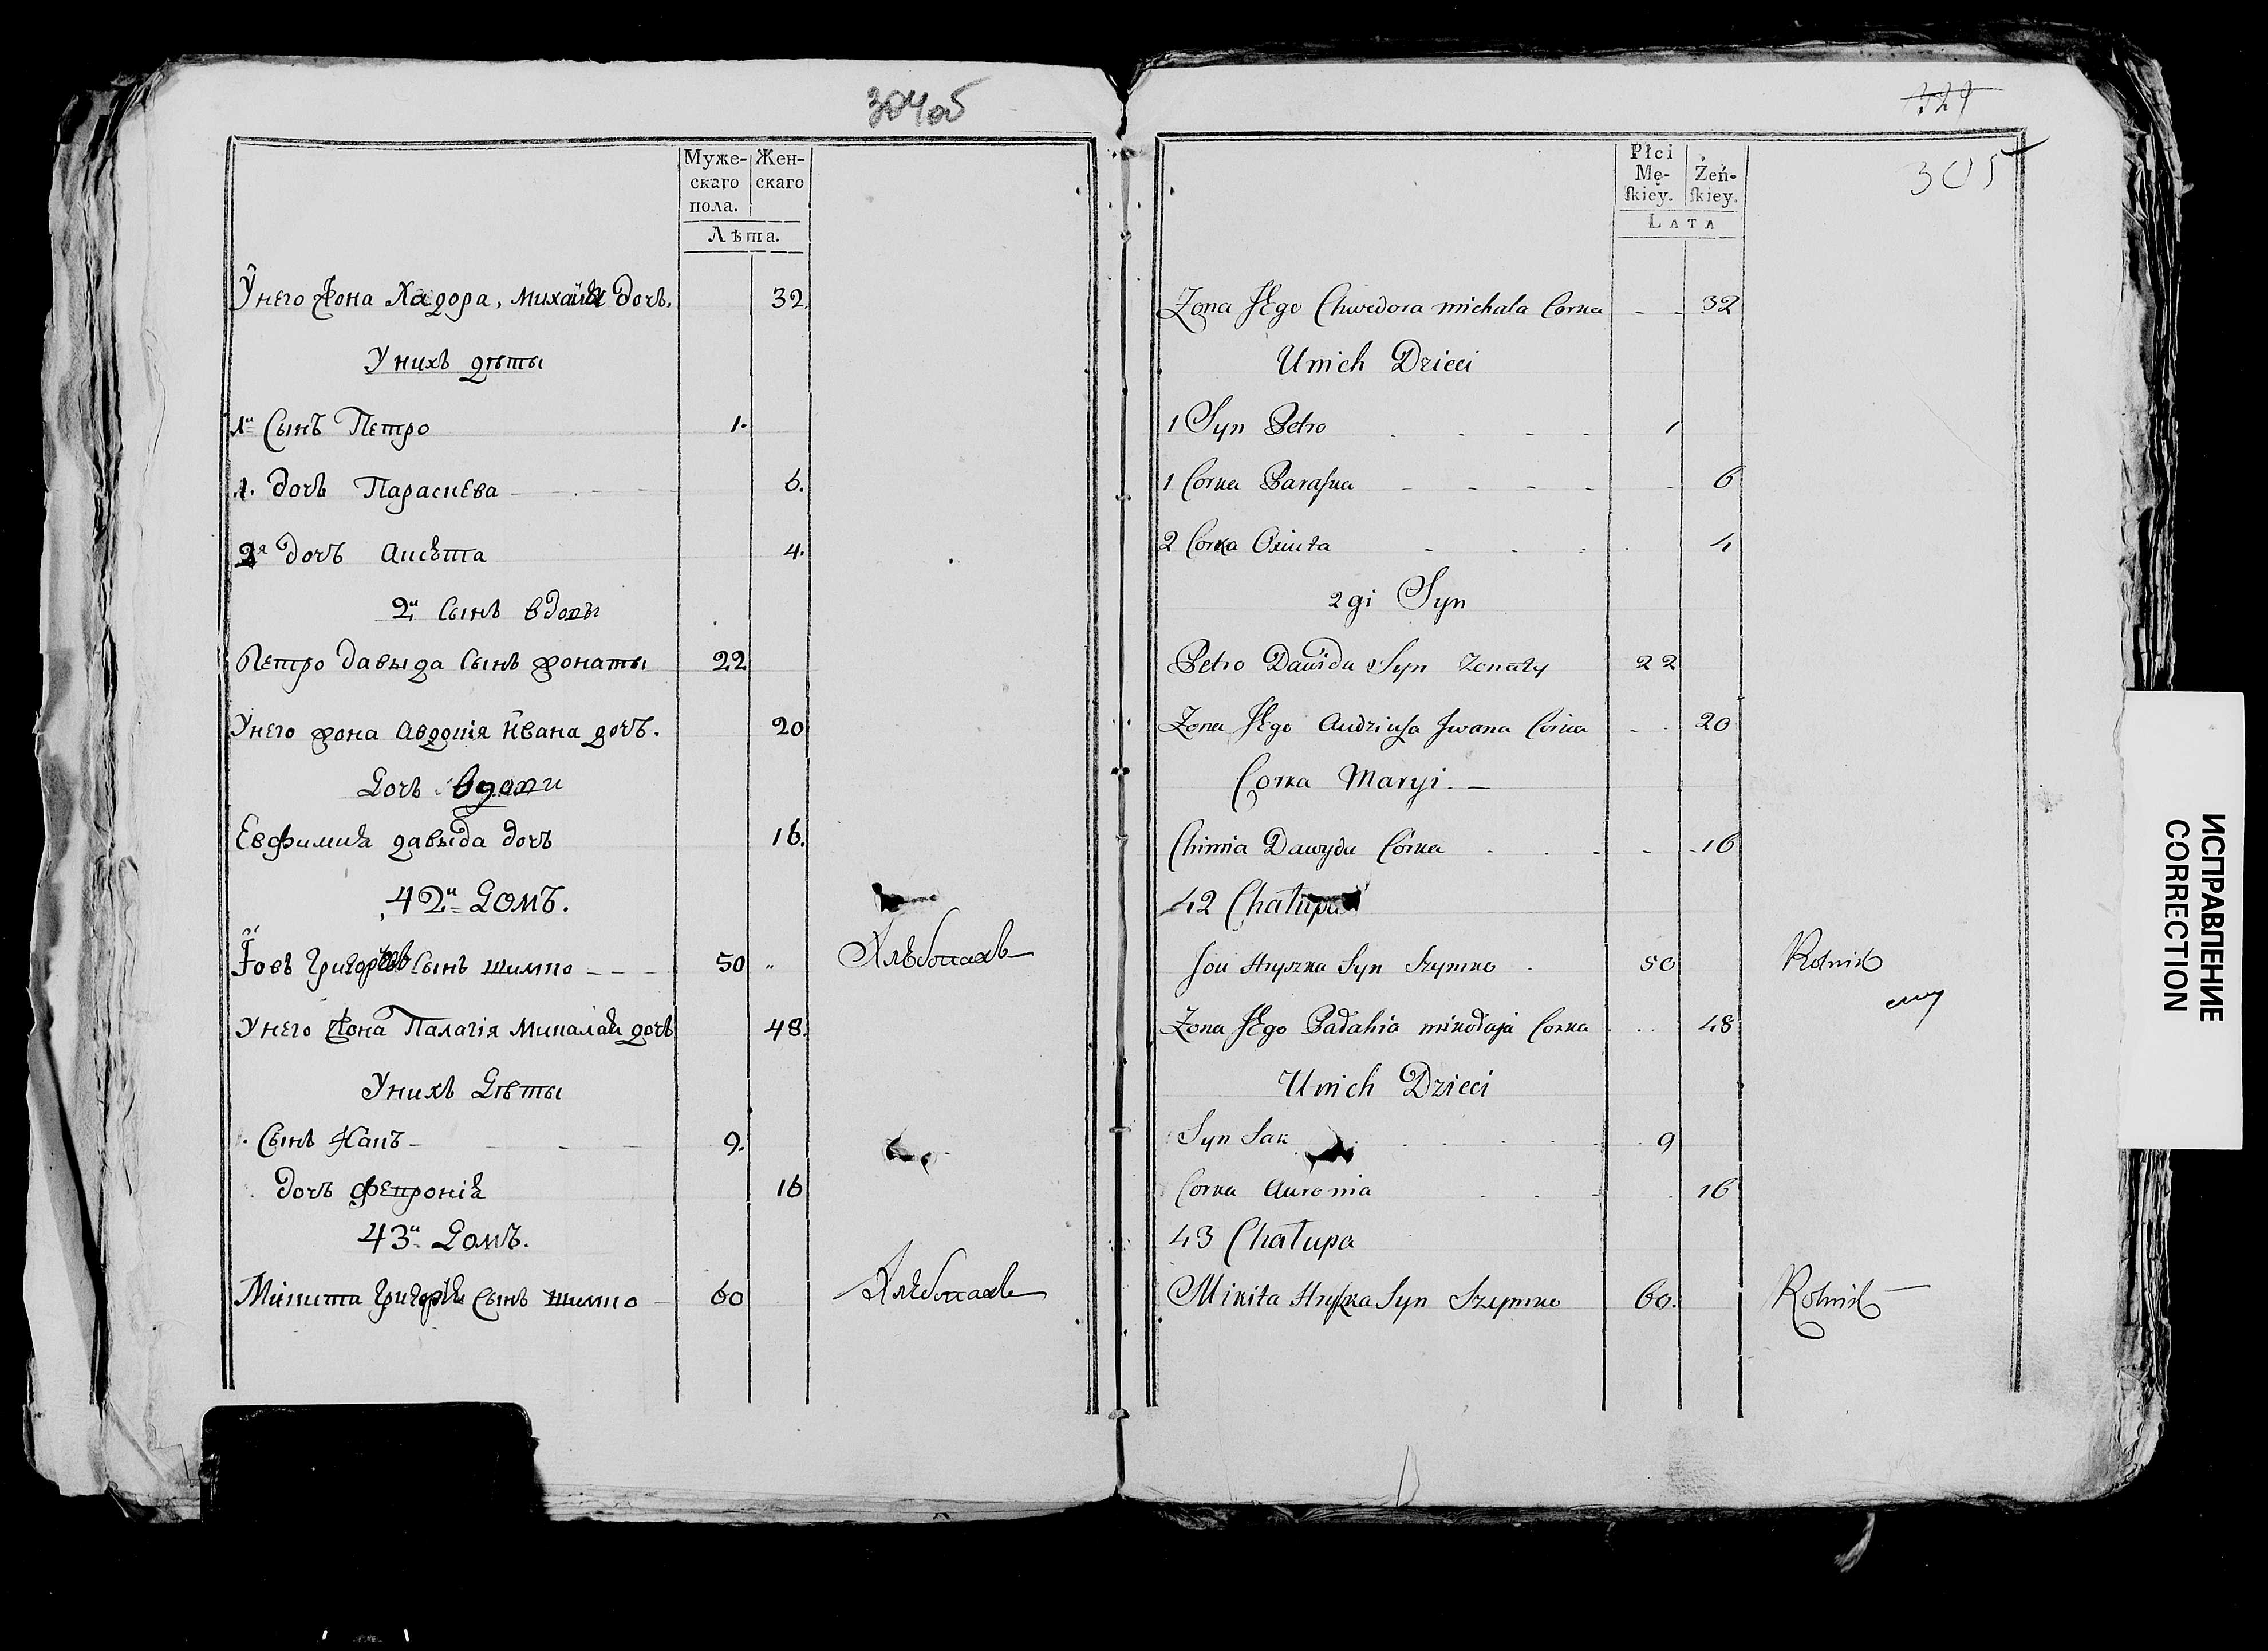 304об
Муже-
скаго
пола.
Жен-
скаго
Лѣта.
У него жона Хадора, Михайла дочъ. 32.
У нихъ дѣти
1й Сынъ Петро 1.
1. дочъ Параскева 6.
2я дочъ 4.
2й Сынъ вдовы
Петро давыда Сынъ жонаты 22
У него жона Авдокія Ивана дочъ. 20
Дочъ вдовы
Евфимия давыда дочъ 16.
42й Домъ.
Іовъ Григорьевъ Сынъ шимко 50 „ Хлѣбопахъ
У него жона Палагія Миколая дочъ 48.
У нихъ Дѣти
Сынъ 9.
дочъ 16
43й Домъ.
Микита Григорья Сынъ шимко 60 Хлѣбопахъ
329
305
Płci
Mę-
skiey.
Żeń-
skiey.
Lata
Zona Jego Chwedora michala Corka 32
U nich Dzieci
1 Syn Petro 1
1 Corka Paraska 6
2 Corka 4
2gi Syn
Petro Dawida Syn Zonaty 22
Zona Jego Audziusa Jwana Corka 20
Corka Maryi.
Chimia Dawyda Corka 16
42 Chałupa
Jou Hryszka Syn Szymko 50 Rolnik
Zona Jego Pałahia mikołaja Corka 48
U nich Dzieci
Syn Sak 9
Corka Auronia 16
43 Chałupa
Mikita Hryszka Syn Szymko 60. Rolnik
ИСПРАВЛЕНИЕ
CORRECTION